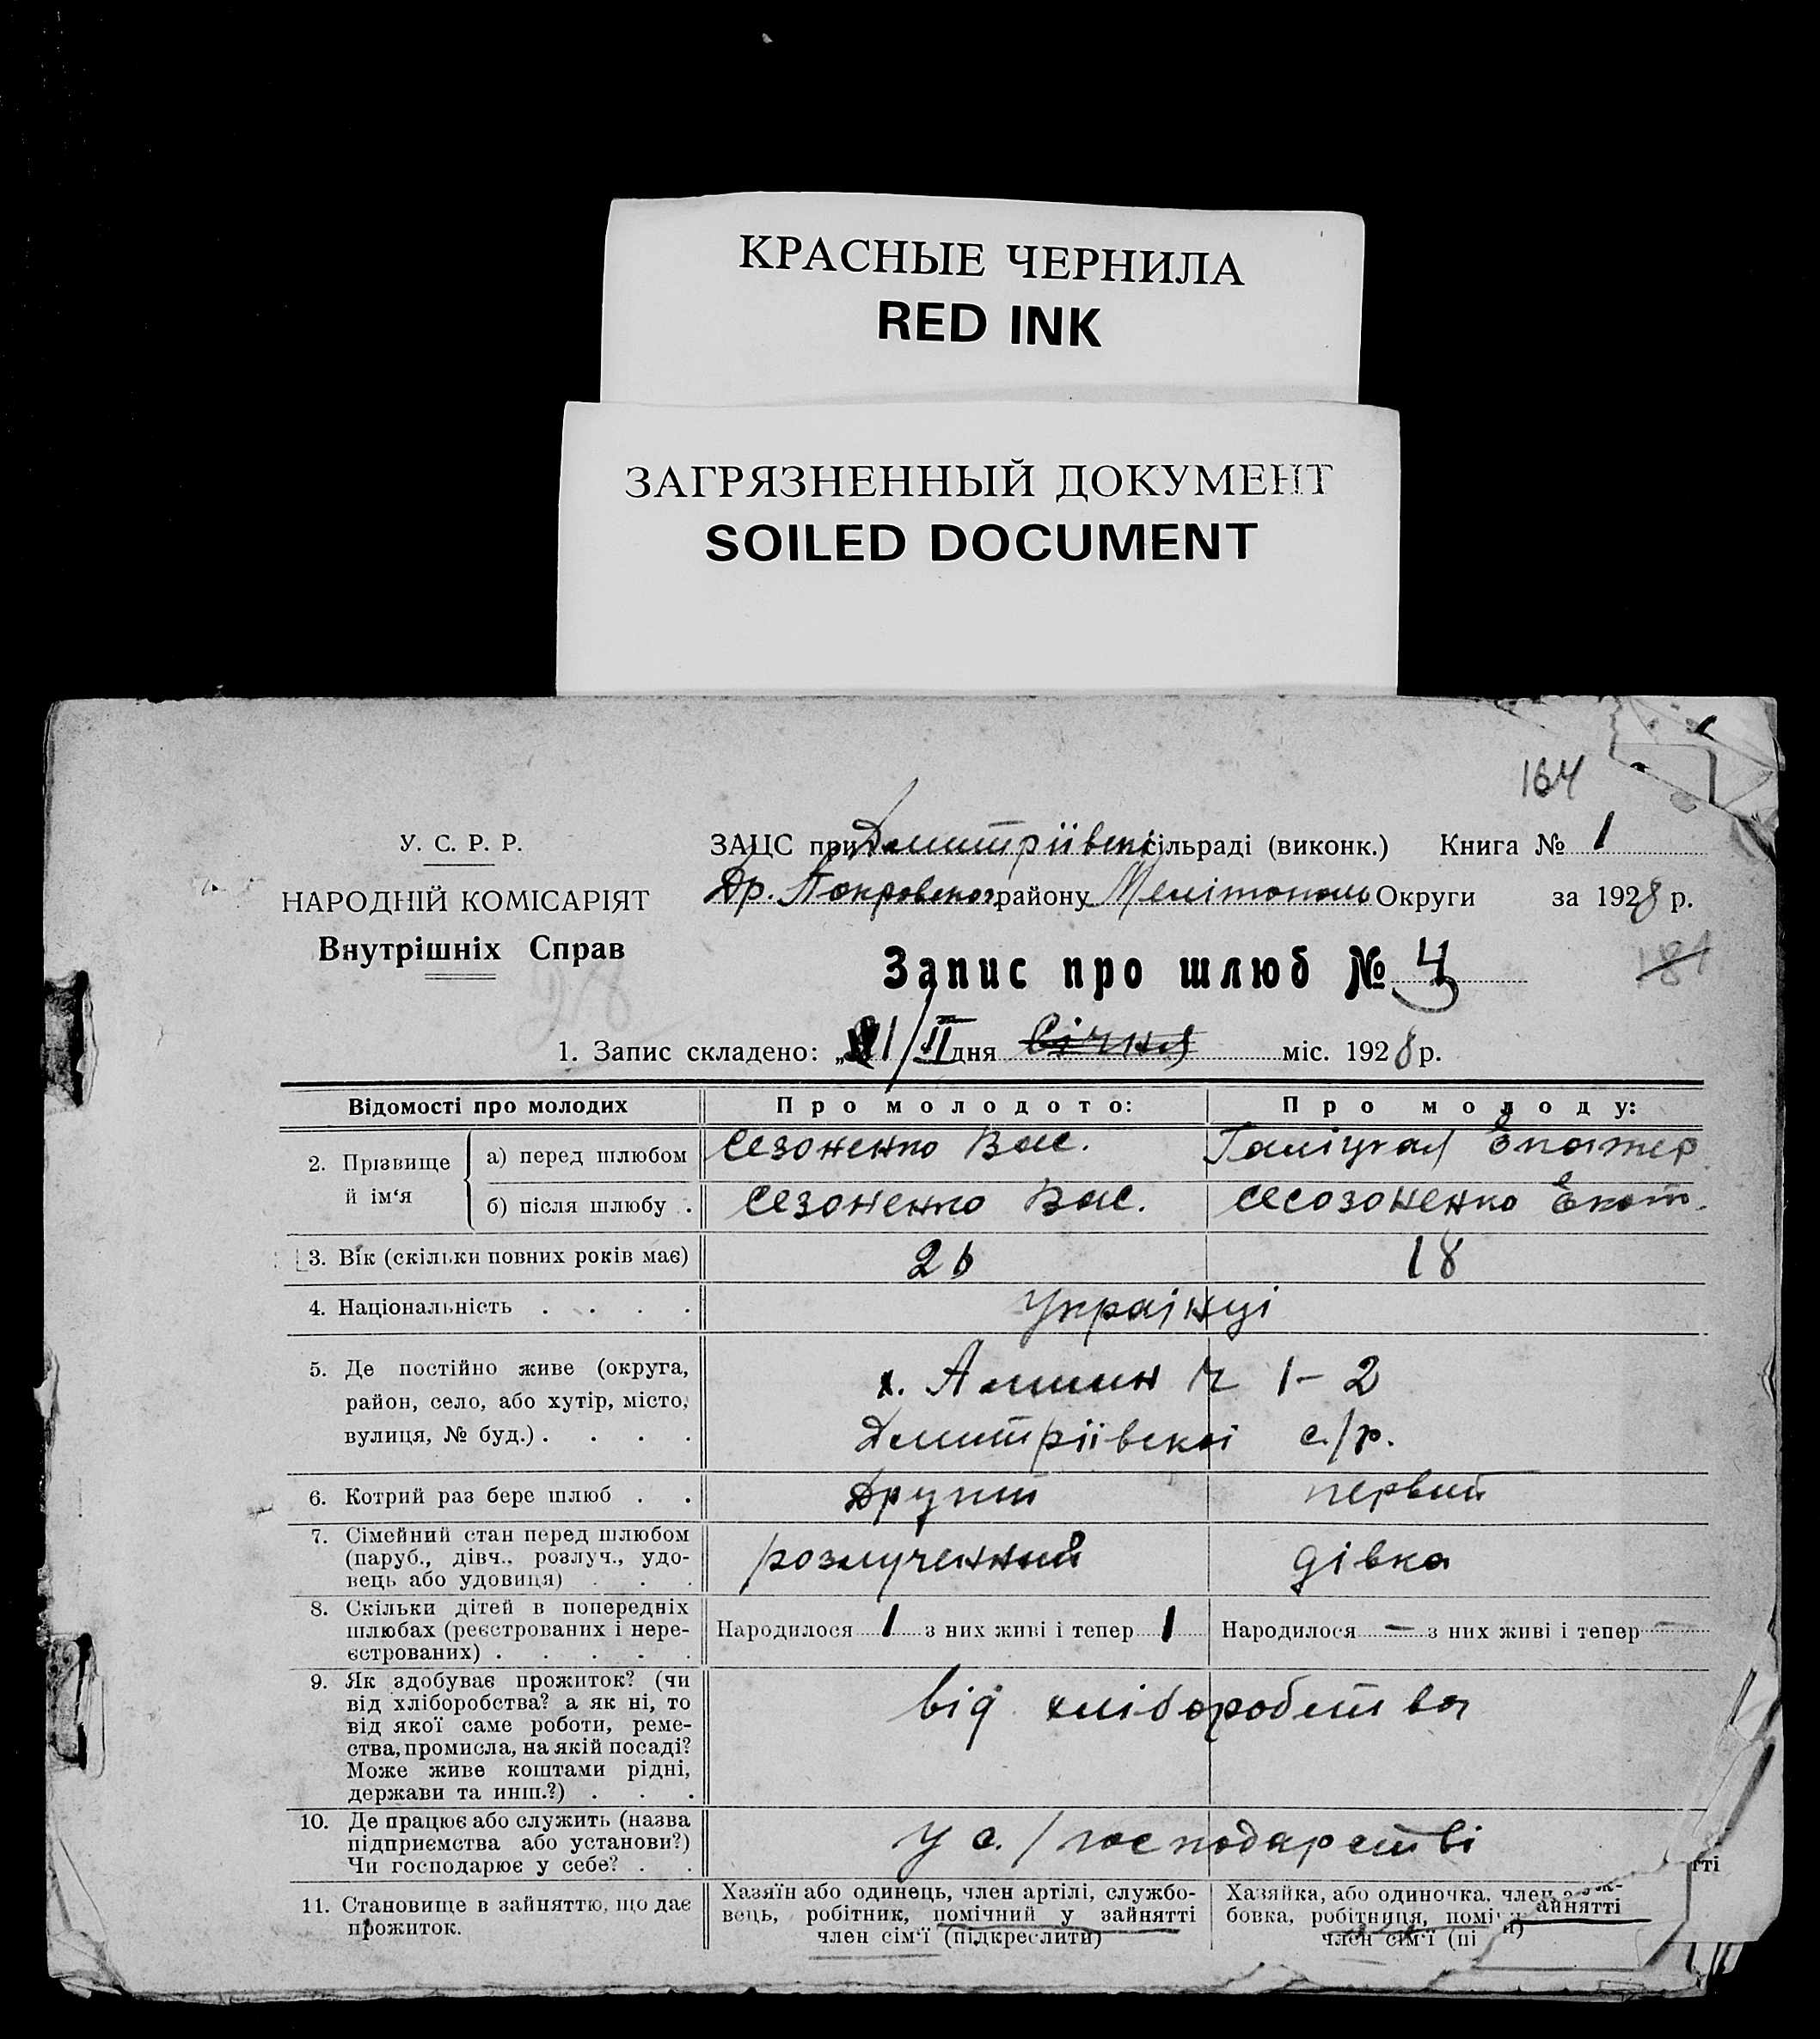 КРАСНЫЕ ЧЕРНИЛА
RED INK
ЗАГРЯЗНЕННЫЙ ДОКУМЕНТ
SOILED DOCUMENT
164
У. С. Р. Р.
НАРОДНІЙ КОМІСАРІЯТ
Внутрішніх Справ
ЗАЦС при Дмитріївські сільраді (виконк.) Книга № 1
Др. Покровског. району Мелітополь Округи за 1928 р.
Запис про шлюб № 4
181
1. Запис складено: „ 1/II дня Січня міс. 1928 р.
Відомості про молодих
Про молодого:
Про молоду:
2. Прізвище й ім‘я
а) перед шлюбом Сезоненко Вас. Галіцкая Екатер
б) після шлюбу . Сезоненко Вас. Сесозоненко Екат.
3. Вік (скільки повних років має) 26 18
4. Національність . . . . Українці
5. Де постійно живе (округа,
район, село, або хутір, місто,
вулиця, № буд.) . . . .
х. Ч 1-2
Дмитріївскої с./р.
6. Котрий раз бере шлюб . . Другий первий
7. Сімейний стан перед шлюбом
(паруб., дівч., розлуч., удо-
вець або удовиця) . . .
розлученний дівка
8. Скільки дітей в попередніх
шлюбах (реєстрованих і нере-
єстрованих) . . . . .
Народилося 1 з них живі і тепер 1 Народилося — з них живі і тепер —
9. Як здобуває прожиток? (чи
від хліборобства? а як ні, то
від якої саме роботи, реме-
ства, промисла, на якій посаді?
Може живе коштами рідні,
держави та инш.?) . . .
від хліборобства
10. Де працює або служить (назва
підприємства або установи?)
Чи господарює у себе? . .
у с./господарстві
тті
11. Становище в зайняттю, що дає
прожиток.
Хазяїн або одинець, член артілі, службо-
вець, робітник, помічний у зайнятті
член сім‘ї (підкреслити)
Хазяйка, або одиночка, член
бовка, робітниця, поміч айнятті
член сім‘ї (пі и)